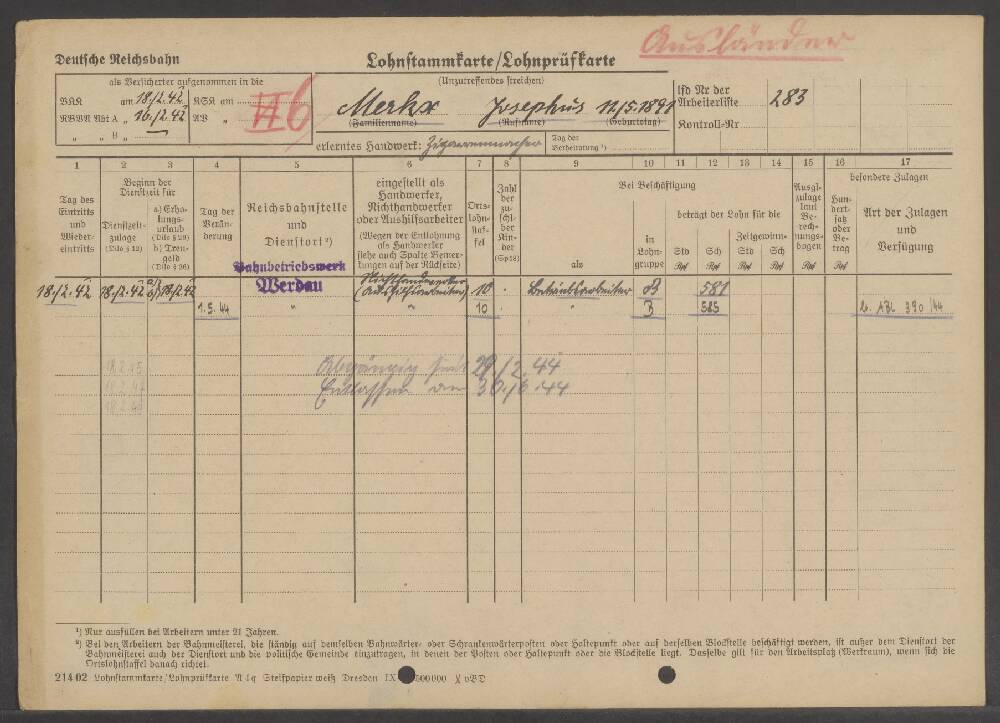 Ausländer
Deutsche Reichsbahn
Lohnstammkarte/Lohnprüfkarte
(Unzutreffendes streichen)
als Versicherter aufgenommen in die
BKK am 18/2.42 KSK am
RBVA Abt A „ 16./2.42 AV „
„ „ B „ —
VII 6
Merkx Josephus 12/5.1891
(Familienname) (Rufname) (Geburtstag)
erlerntes Handwerk: Zigarrenmacher
Tag der Verheiratung ¹)
lfd Nr der Arbeiterliste 283
Kontroll-Nr
1 2 3 4 5 6 7 8 9 10 11 12 13 14 15 16 17
Tag des Eintritts und Wiedereintritts
Beginn der Dienstzeit für
Dienstzeitzulage (Dilo § 12)
a) Erholungsurlaub (Dilo § 29) b) Trengeld (Dilo § 26)
Tag der Veränderung
Reichsbahnstelle und Dienstort²)
eingestellt als Handwerker, Nichthandwerker oder Aushilfsarbeiter
(Wegen der Entlohnung als Handwerker siehe auch Spalte Bemerkungen auf der Rückseite)
Ortslohnstaffel
Zahl der zuschl-ber Kinder (Sp 18)
Bei Beschäftigung
als
in Lohngruppe
beträgt der Lohn für die
Std Rpf
Sch Rpf
Zeitgewinn-
Std Rpf
Sch Rpf
Ausglzulage laut Berechnungsbogen
Hundertsatz oder Betrag
besondere Zulagen
Art der Zulagen und Verfügung
Bahnbetriebswerk
Werdau
18./2.42 18/2.42 a) b) 18/2.42 Nichthandwerker (Aushilfsarbeiter) 10 Betriebsarbeiter B 581
1.5.44 „ „ 10 „ B 585 44
18.2.45
Abgängig seit 29/2.44
Entlassen am 30./6.44
¹) Nur ausfüllen bei Arbeitern unter 21 Jahren.
²) Bei den Arbeitern der Bahnmeisterei, die ständig auf demselben Bahnwärter- oder Schrankenwärterposten oder Haltepunkt oder auf derselben Blockstelle beschäftigt werden, ist außer dem Dienstort der
Bahnmeisterei auch der Dienstort und die politische Gemeinde einzutragen, in denen der Posten oder Haltepunkt oder die Blockstelle liegt. Dasselbe gilt für den Arbeitsplatz (Werkraum), wenn sich die
Ortslohnstaffel danach richtet.
214 02 Lohnstammkarte/Lohnprüfkarte A 4q Steifpapier weiß Dresden IX 500000 X vBD